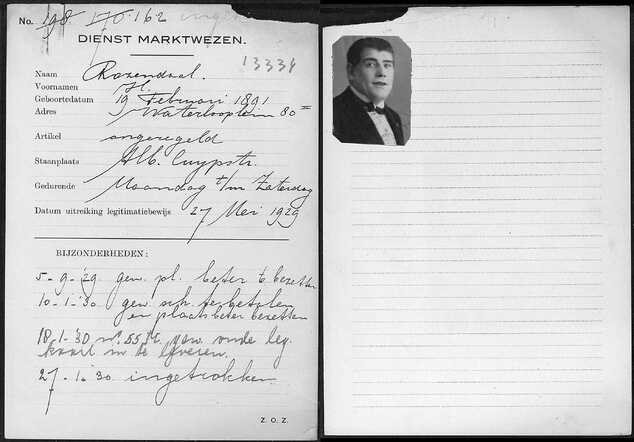 No. 198 170.162 inge
DIENST MARKTWEZEN.
13334
Naam Rozendaal.
Voornamen H.
Geboortedatum 19 Februari 1891
Adres Waterlooplein 80
Artikel ongeregeld
Staanplaats Alb. Cuypstr.
Gedurende Maandag t/m Zaterdag
Datum uitreiking legitimatiebewijs 27 Mei 1929
BIJZONDERHEDEN:
5-9-'29 gew. pl. beter te bezetten
10-1-'30 gew. sch. te betalen
en plaats beter bezetten
18-1-'30 no. gew. oude leg.
kaart in te leveren.
27-1-'30 ingetrokken
Z. O. Z.